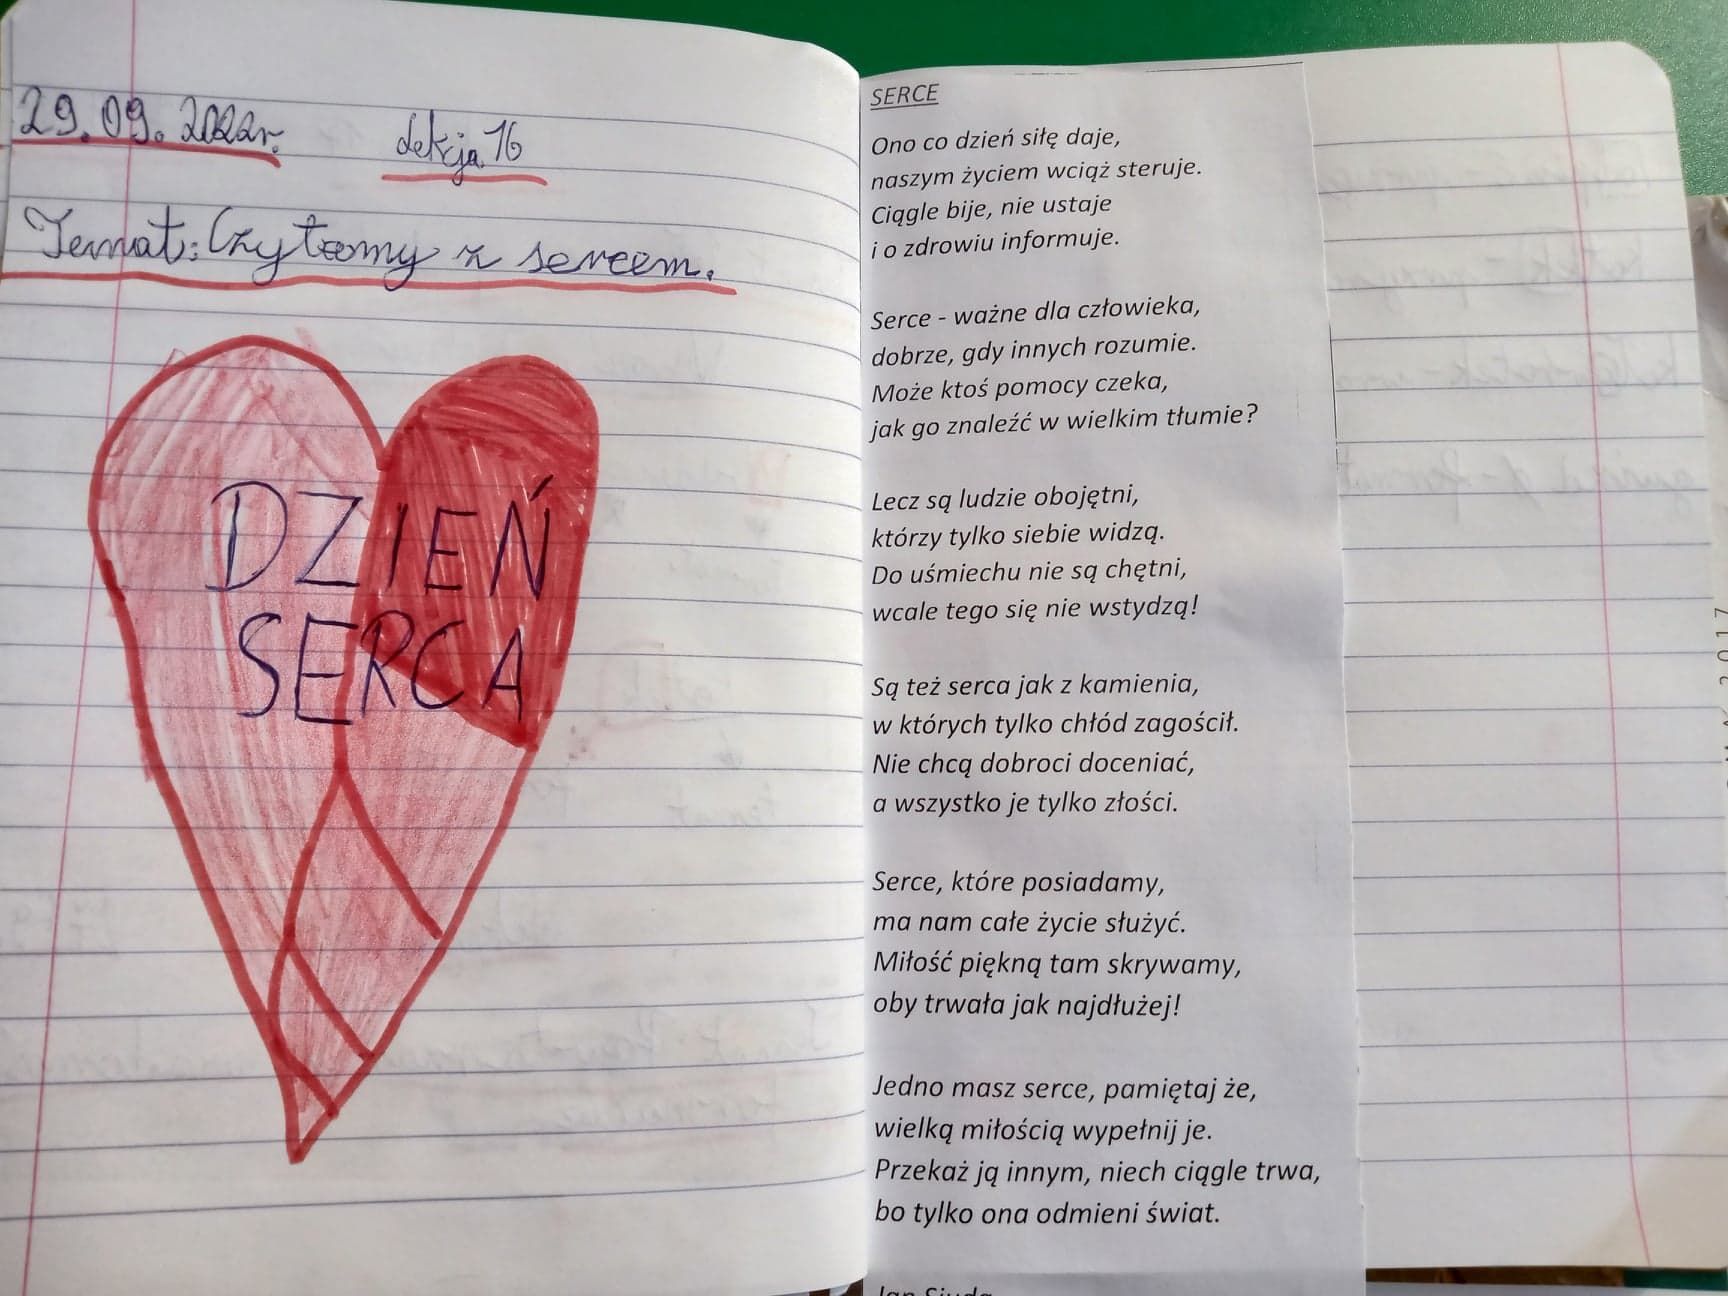 29.09.2022r. Lekcja 16
Temat: Czytamy z sercem.
DZIEŃ
SERCA
SERCE
Ono co dzień siłę daje,
naszym życiem wciąż steruje.
Ciągle bije, nie ustaje
i o zdrowiu informuje.
Serce - ważne dla człowieka,
dobrze, gdy innych rozumie.
Może ktoś pomocy czeka,
jak go znaleźć w wielkim tłumie?
Lecz są ludzie obojętni,
którzy tylko siebie widzą.
Do uśmiechu nie są chętni,
wcale tego się nie wstydzą!
Są też serca jak z kamienia,
w których tylko chłód zagościł.
Nie chcą dobroci doceniać,
a wszystko je tylko złości.
Serce, które posiadamy,
ma nam całe życie służyć.
Miłość piękną tam skrywamy,
oby trwała jak najdłużej!
Jedno masz serce, pamiętaj że,
wielką miłością wypełnij je.
Przekaż ją innym, niech ciągle trwa,
bo tylko ona odmieni świat.
2017